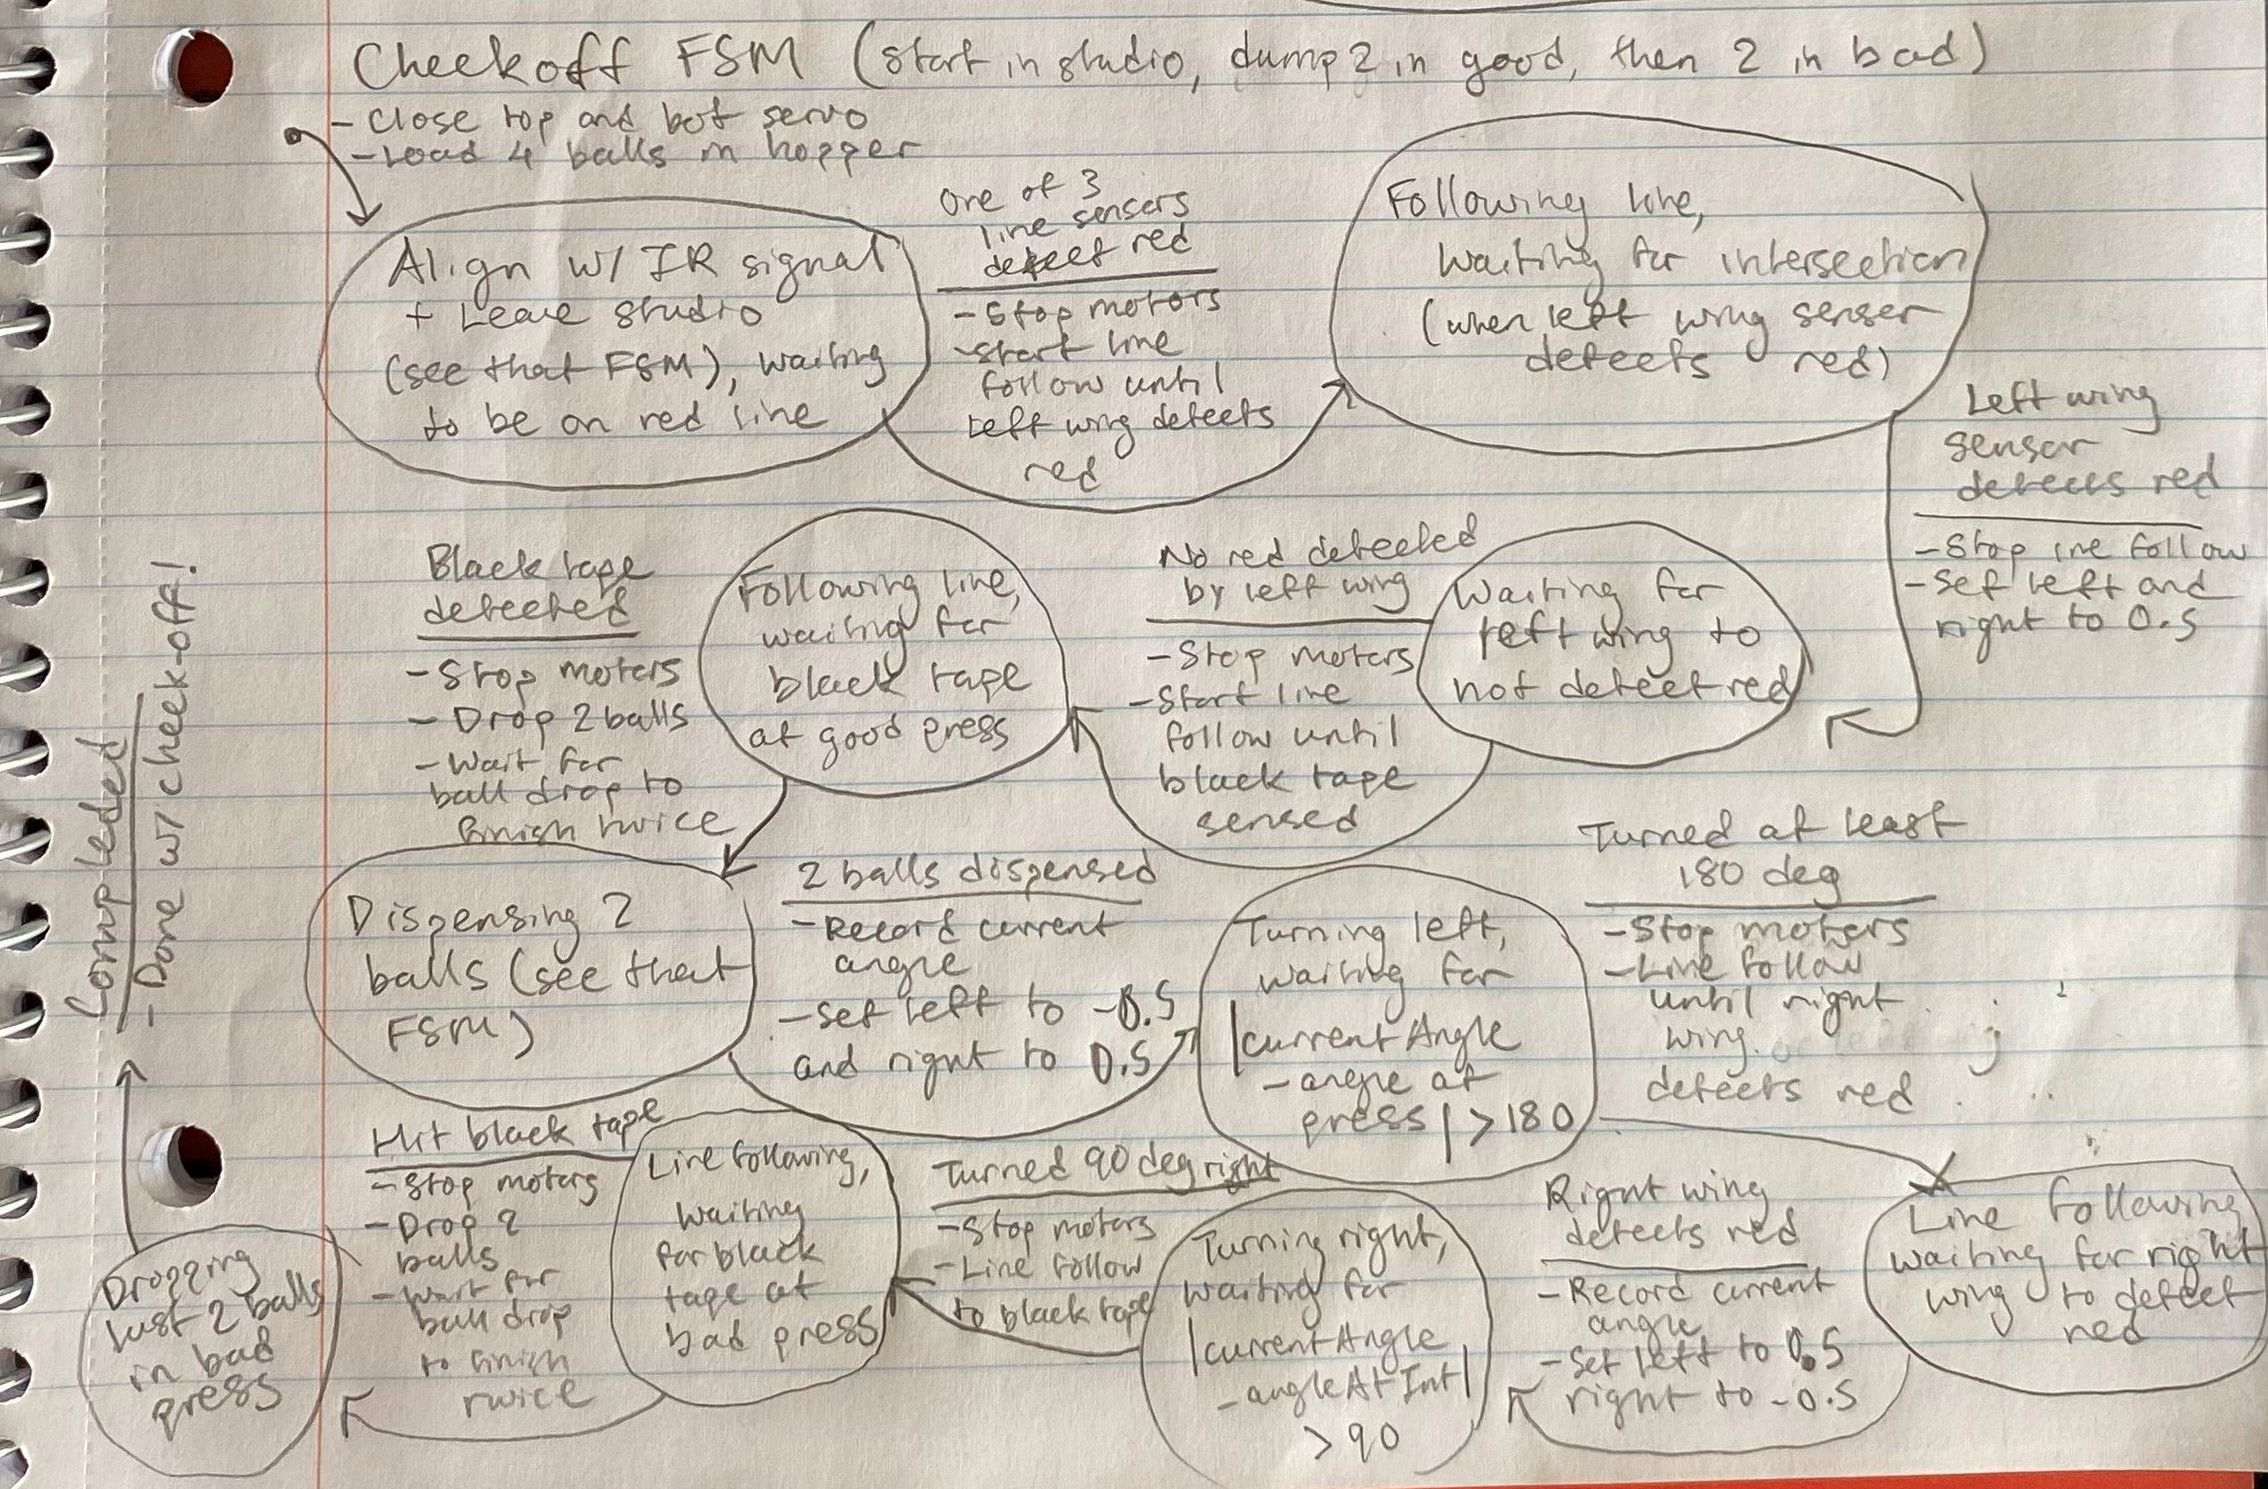 Checkoff FSM (start in studio, dump 2 in good, then 2 in bad)
- Close top and bot servo
- Load 4 balls in hopper
Align w/ IR signal
+ Leave studio
(see that FSM), waiting
to be on red line
One of 3
line sensors
detect red
- Stop motors
- Start line
follow until
left wing detects
red
Following line,
waiting for intersection
(when left wing senser
detects red)
Left wing
sensor
detects red
- Stop line follow
- Set left and
right to 0.5
Waiting for
left wing to
not detect red
No red detected
by left wing
- Stop motors
- Start line
follow until
black tape
sensed
Following line,
waiting for
black tape
at good press
Black tape
detected
- Stop motors
- Drop 2 balls
- Wait for
ball drop to
finish twice
Dispensing 2
balls (see that
FSM)
2 balls dispensed
- Record current
angle
- Set left to -0.5
and right to 0.5
Turning left,
waiting for
|currentAngle
- angle at
press| > 180
Turned at least
180 deg
- Stop motors
- Line follow
until right
wing
detects red
Line following
waiting for right
wing to detect
red
Right wing
detects red
- Record current
angle
- Set left to 0.5
right to -0.5
Turning right,
waiting for
|currentAngle
- angleAtInt|
> 90
Turned 90 deg right
- Stop motors
- Line follow
to black tape
Line following,
waiting
for black
tape at
bad press
Hit black tape
- Stop motors
- Drop 2
balls
- Wait for
ball drop
to finish
twice
Dropping
last 2 balls
in bad
press
Completed
- Done w/ check-off!